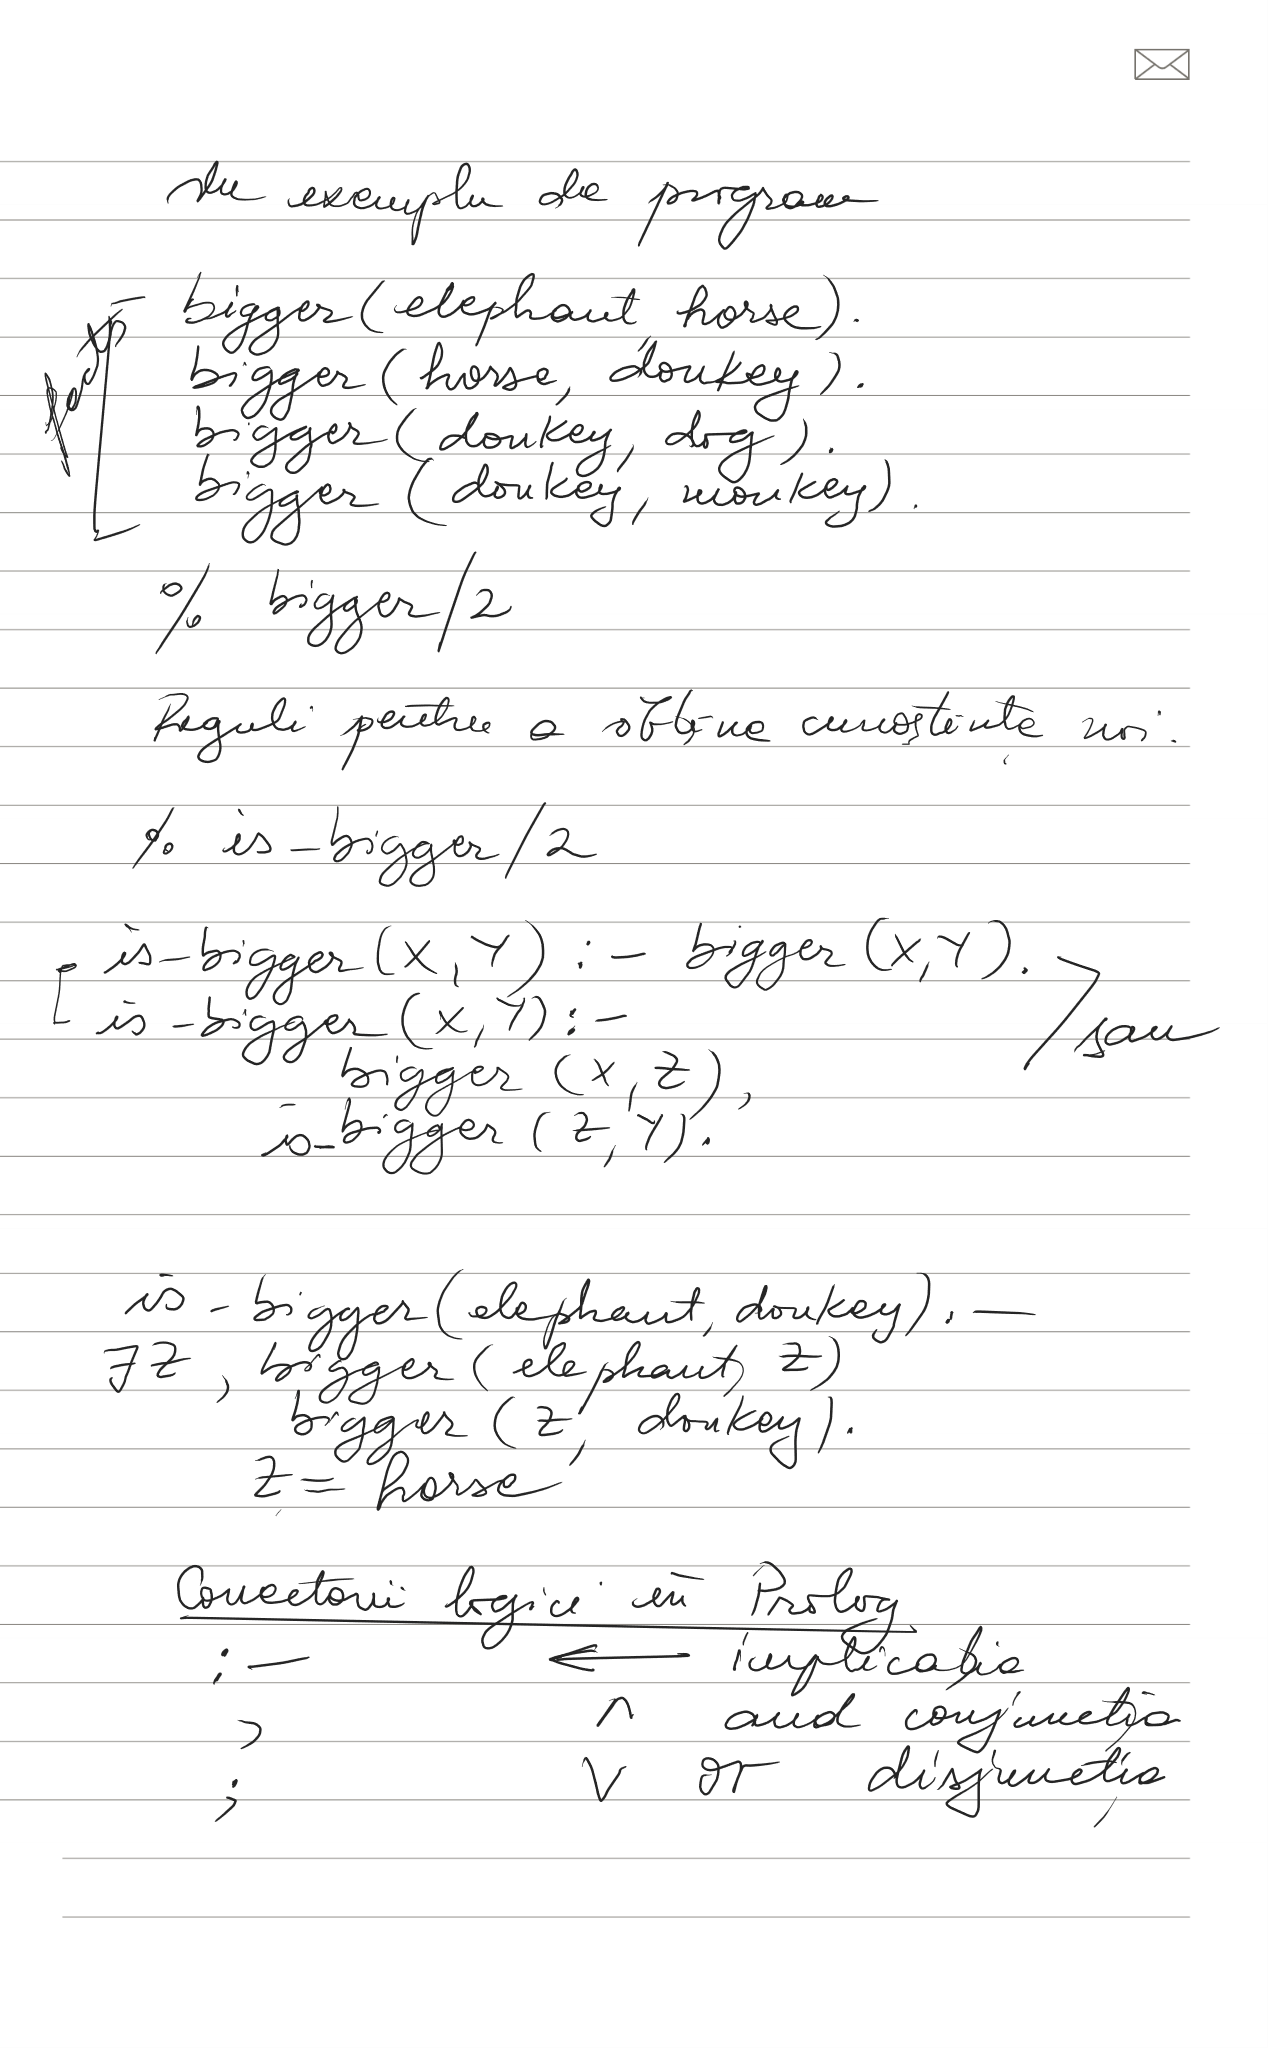 Un exemplu de program
bigger(elephant, horse).
bigger(horse, donkey).
bigger(donkey, dog).
bigger(donkey, monkey).
facts
% bigger/2
Reguli pentru a obține cunoștințe noi.
% is_bigger/2
is_bigger(X,Y) :- bigger(X,Y).
is_bigger(X,Y):-
sau
bigger(X,Z),
is_bigger(Z,Y).
is_bigger(elephant, donkey). —
∃Z, bigger(elephant, Z)
bigger(Z, donkey).
Z = horse
Conectorii logici în Prolog
:- ← implicatia
, ∧ and conjuncția
; ∨ or disjuncția